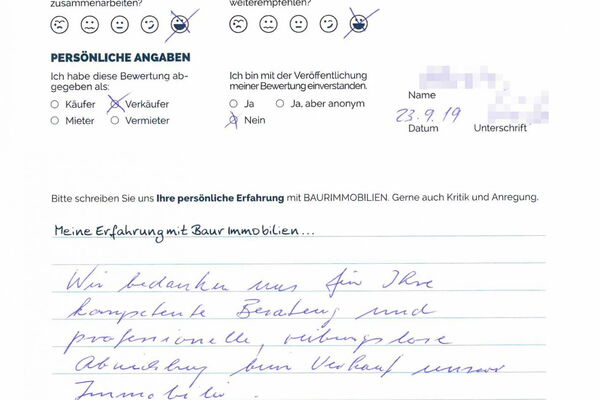 zusammenarbeiten?
weiterempfehlen?
PERSÖNLICHE ANGABEN
Ich habe diese Bewertung ab-
gegeben als:
Käufer
Verkäufer
Mieter
Vermieter
Ich bin mit der Veröffentlichung
meiner Bewertung einverstanden.
Ja
Ja, aber anonym
Nein
Name
23.9.19
Datum
Unterschrift
Bitte schreiben Sie uns Ihre persönliche Erfahrung mit BAURIMMOBILIEN. Gerne auch Kritik und Anregung.
Meine Erfahrung mit Baur Immobilien...
Wir bedanken uns für Ihre
kompetente Beratung und
professionelle, reibungslose
Abwicklung beim Verkauf unserer
Immobilie.